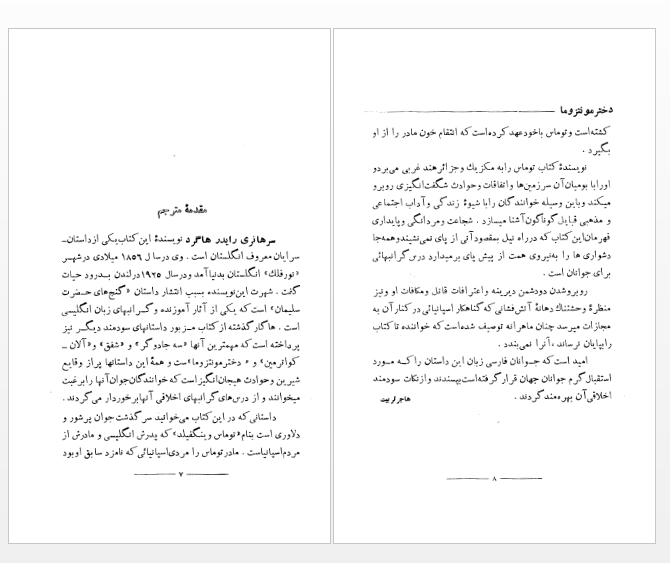 مقدمهٔ مترجم
سرهانری رایدر هاگرد نویسندهٔ این کتاب یکی از داستان‌ـ
سرایان معروف انگلستان است . وی در سال ۱۸۵۶ میلادی در شهر
«نورفلك» انگلستان بدنیا آمد و در سال ۱۹۲۵ در لندن بــدرود حیات
گفت . شهرت این نویسنده بسبب انتشار داستان «گنج‌های حــضرت
سلیمان» است که یکی از آثار آموزنده و گــرانبهای زبان انگلیسی
است . هاگارد گذشته از کتاب مــزبور داستانهای سودمند دیگــر نیز
پرداخته است که مهمترین آنها «سه جادوگر» و «شفق» و «آلان ـ
کواترمین» و « دختر مونتزوما»ست و همهٔ این داستانها پر از وقایع
شیرین و حوادث هیجان‌انگیز است که خوانندگان جوان آنها را برغبت
میخوانند و از درس‌های گرانبهای اخلاقی آنها برخوردار می‌گردند .
داستانی که در این کتاب می‌خوانید سرگذشت جوان پرشور و
دلاوری است بنام «توماس وینگفیلد» که پدرش انگلیسی و مادرش از
مردم اسپانیاست . مادر توماس را مردی اسپانیائی که نامزد سابق او بود
۷
دختر مونتزوما
کشته‌است و توماس با خود عهد کرده‌است که انتقام خون مادر را از او
بگیرد .
نویسندهٔ کتاب توماس را به مکزیك و جزائر هند غربی می‌برد و
او را با بومیان آن سرزمین‌ها و اتفاقات و حوادث شگفت‌انگیزی روبرو
میکند و باین وسیله خوانندگان را با شیوهٔ زندگی و آداب اجتماعی
و مذهبی قبایل گوناگون آشنا میسازد . شجاعت و مردانگی و پایداری
قهرمان این کتاب که در راه نیل بمقصود آنی از پای نمی‌نشیند و همه‌جا
دشواری ها را به‌نیروی همت از پیش پای برمیدارد درس گرانبهائی
برای جوانان است .
روبرو شدن دو دشمن دیرینه و اعترافات قاتل و مکافات او و نیز
منظرهٔ وحشتناك دهانهٔ آتش‌فشانی که گناهکار اسپانیائی در کنار آن به
مجازات میرسد چنان ماهرانه توصیف شده‌است که خواننده تا کتاب
را بپایان نرساند ، آنرا نمی‌بندد .
امید است که جــوانان فارسی زبان این داستان را کــه مــورد
استقبال گرم جوانان جهان قرار گرفته‌است بپسندند و از نکات سودمند
اخلاقی آن بهره‌مند گردند .
هاجر تربیت
۸